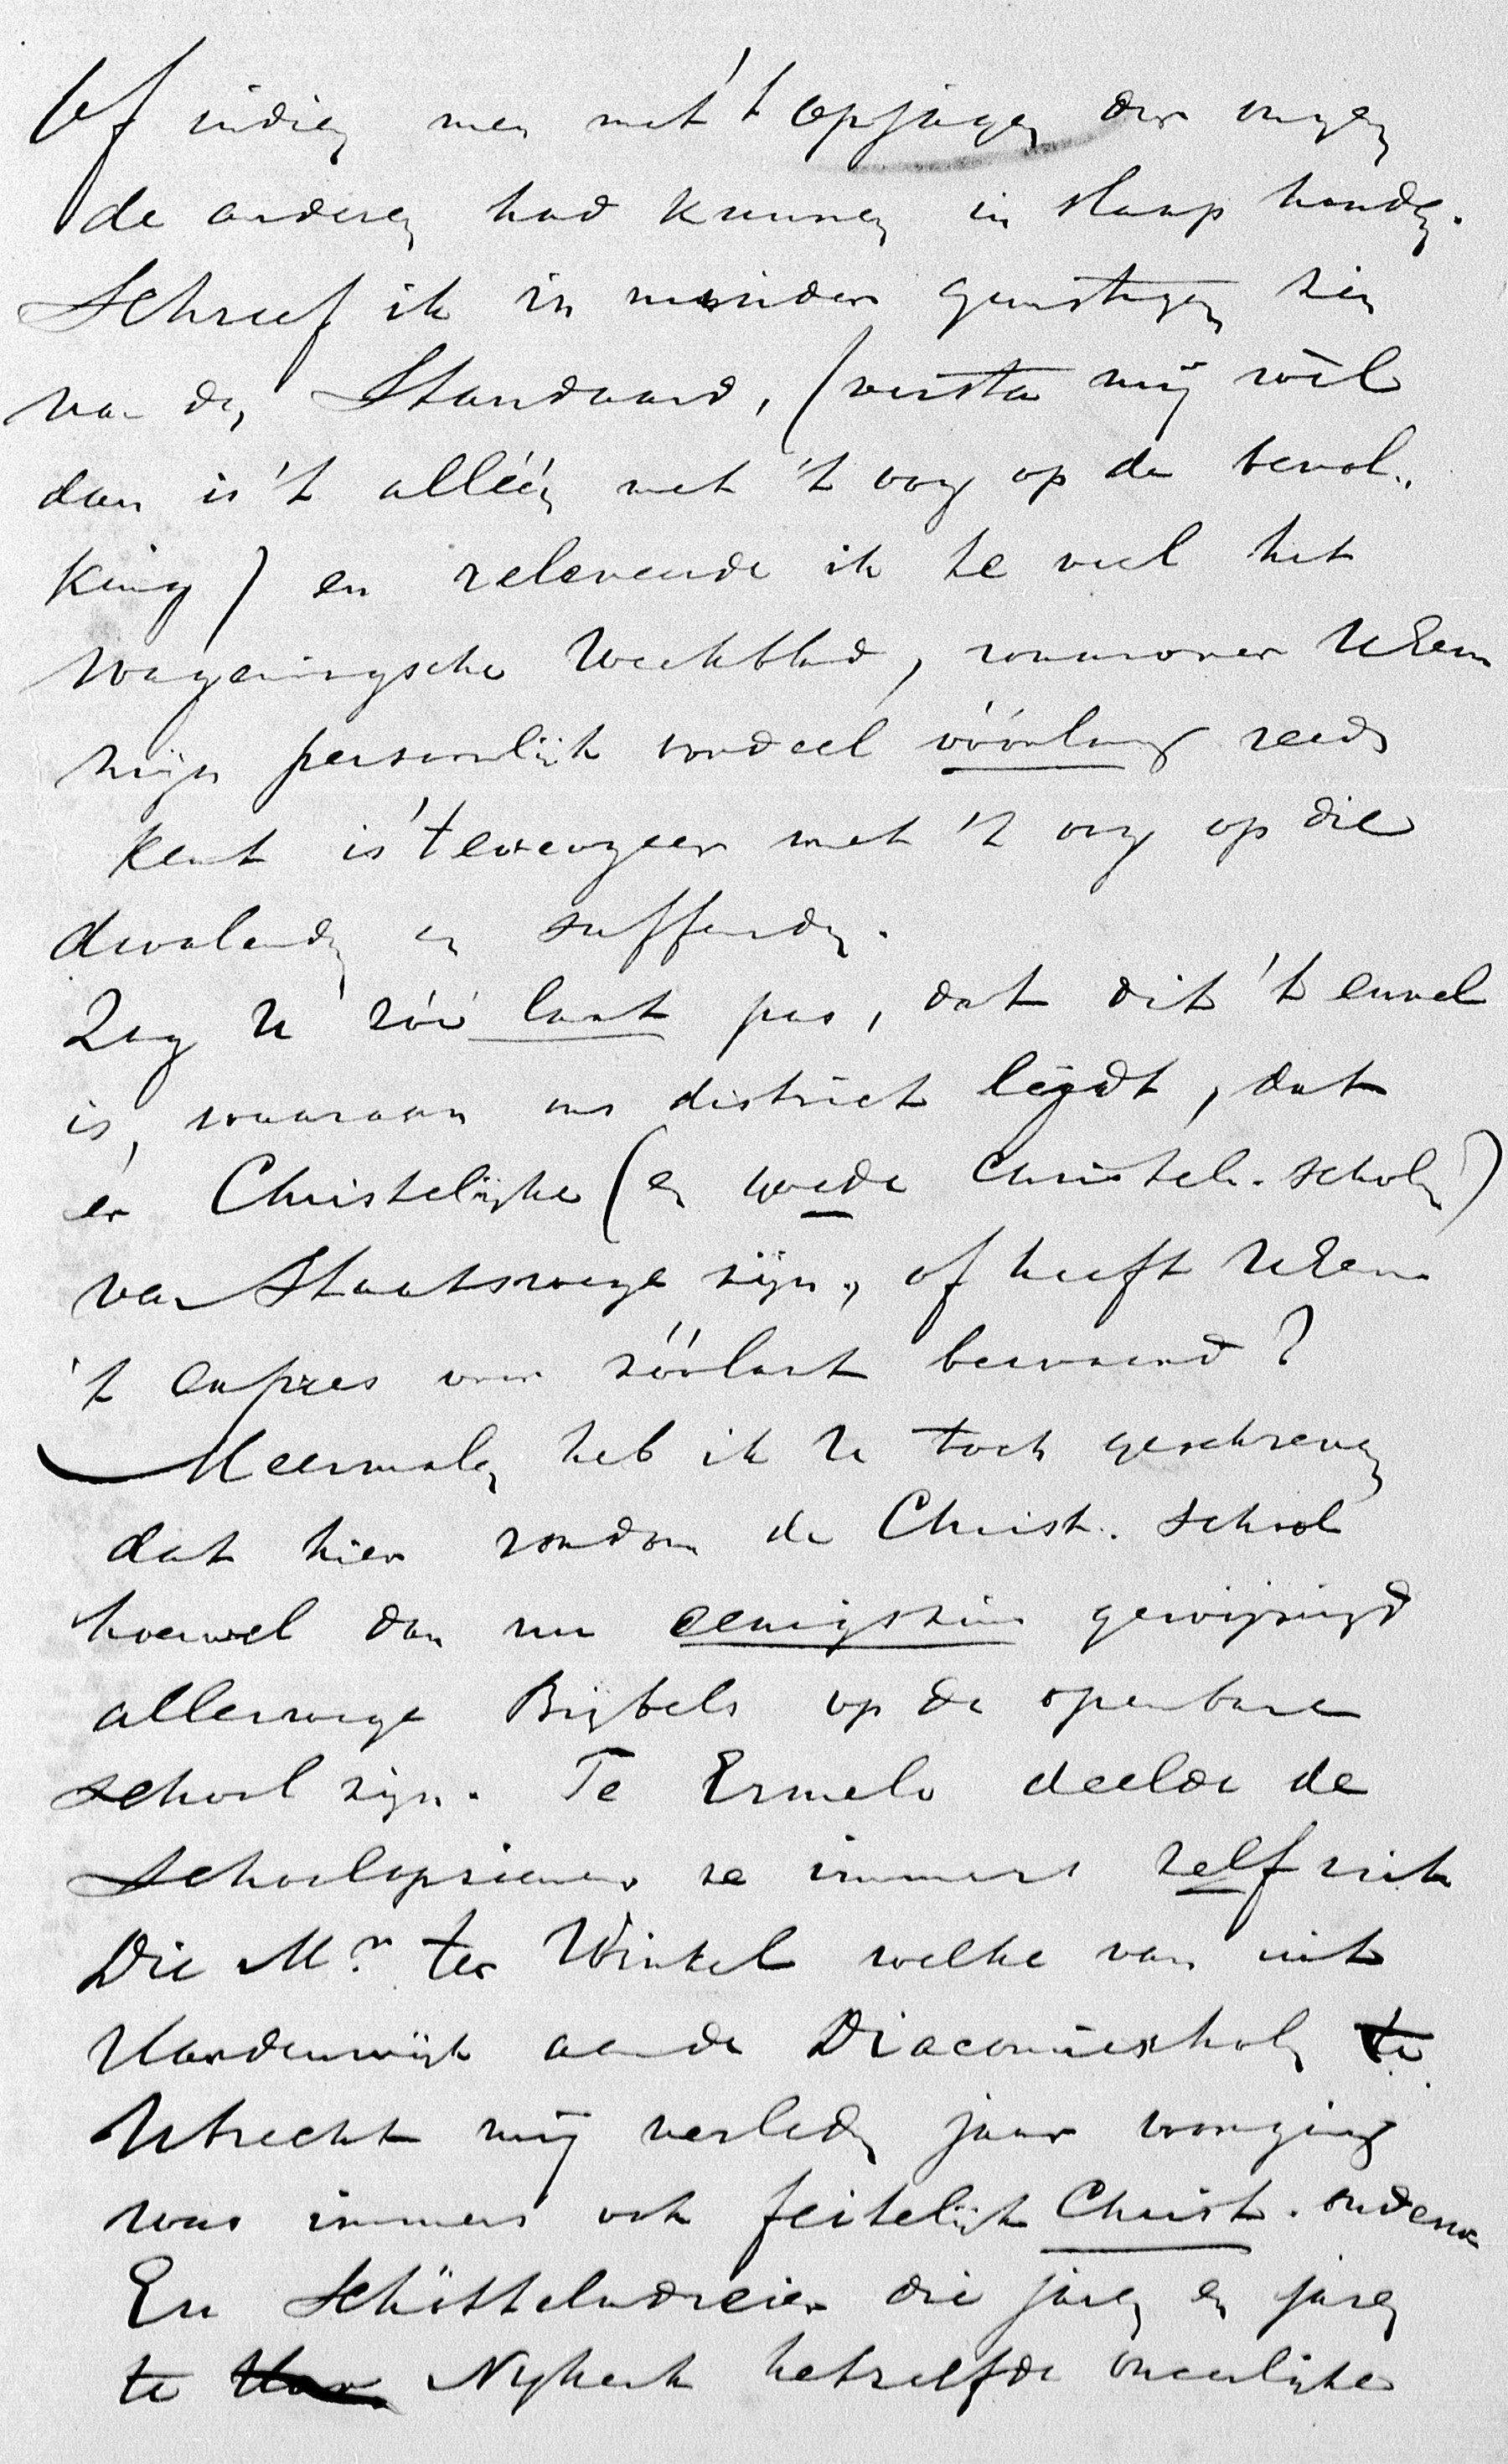 Of indien men met 't opjagen der eenen
de anderen had kunnen in slaap houden.
Schreef ik in minder gunstigen zin
van den Standaard, (versta mij wèl
dan is 't alléén met 't oog op de bevol„
king) en releveerde ik te veel het
Wageningsche Weekblad, waarover UEerw
mijn persoonlijk oordeel vóórlang reeds
kent is 't evenzeer met 't oog op die
dwalenden en suffenden.
Zag U zóó laat pas, dat dit 't euvel
is, waaraan ons district lijdt, dat
er Christelijke (en goede Christel. scholen)
van Staatswege zijn, of heeft UEerw
't expres voor zóólaat bewaard?
Meermalen heb ik U toch geschreven
dat hier rondom de Christ. school
hoewel dan nu eenigszins gewijzigd
allerwege Bijbels op de openbare
school zijn. Te Ermelo deelde de
Schoolopziener ze immers zelf uit
Die Mr ter Winkel welke van uit
Harderwijk aan de Diaconiescholen te
Utrecht mij verleden jaar voorging
was immers ook feitelijk Christ. onderw
En Schötteludreier die jaren en jaren
te Nykerk hetzelfde oneerlijke